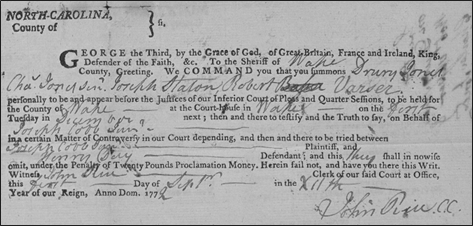 NORTH-CAROLINA, } ss.
County of
GEORGE the Third, by the Grace of God, of Great-Britain, France and Ireland, King,
Defender of the Faith, &c. To the Sheriff of Wake
County, Greeting. We COMMAND you that you summons Drury Jones
Joseph Staton Robert
personally to be and appear before the Justices of our Inferior Court of Pleas and Quarter Sessions, to be held for
the County of Wake at the Court-House in Wake on the first
Tuesday in December next; then and there to testify and the Truth to say, on Behalf of
Joseph Cobb Junr
in a certain Matter of Controversy in our Court depending, and then and there to be tried between
Joseph Cobb Junr Plaintiff, and
Defendant; and this they shall in nowise
omit, under the Penalty of Twenty Pounds Proclamation Money. Herein fail not, and have you there this Writ.
Witness John Rice Clerk of our said Court at Office,
this first Day of Septr. in the XIIth
Year of our Reign, Anno Dom. 177
John Rice C.C.